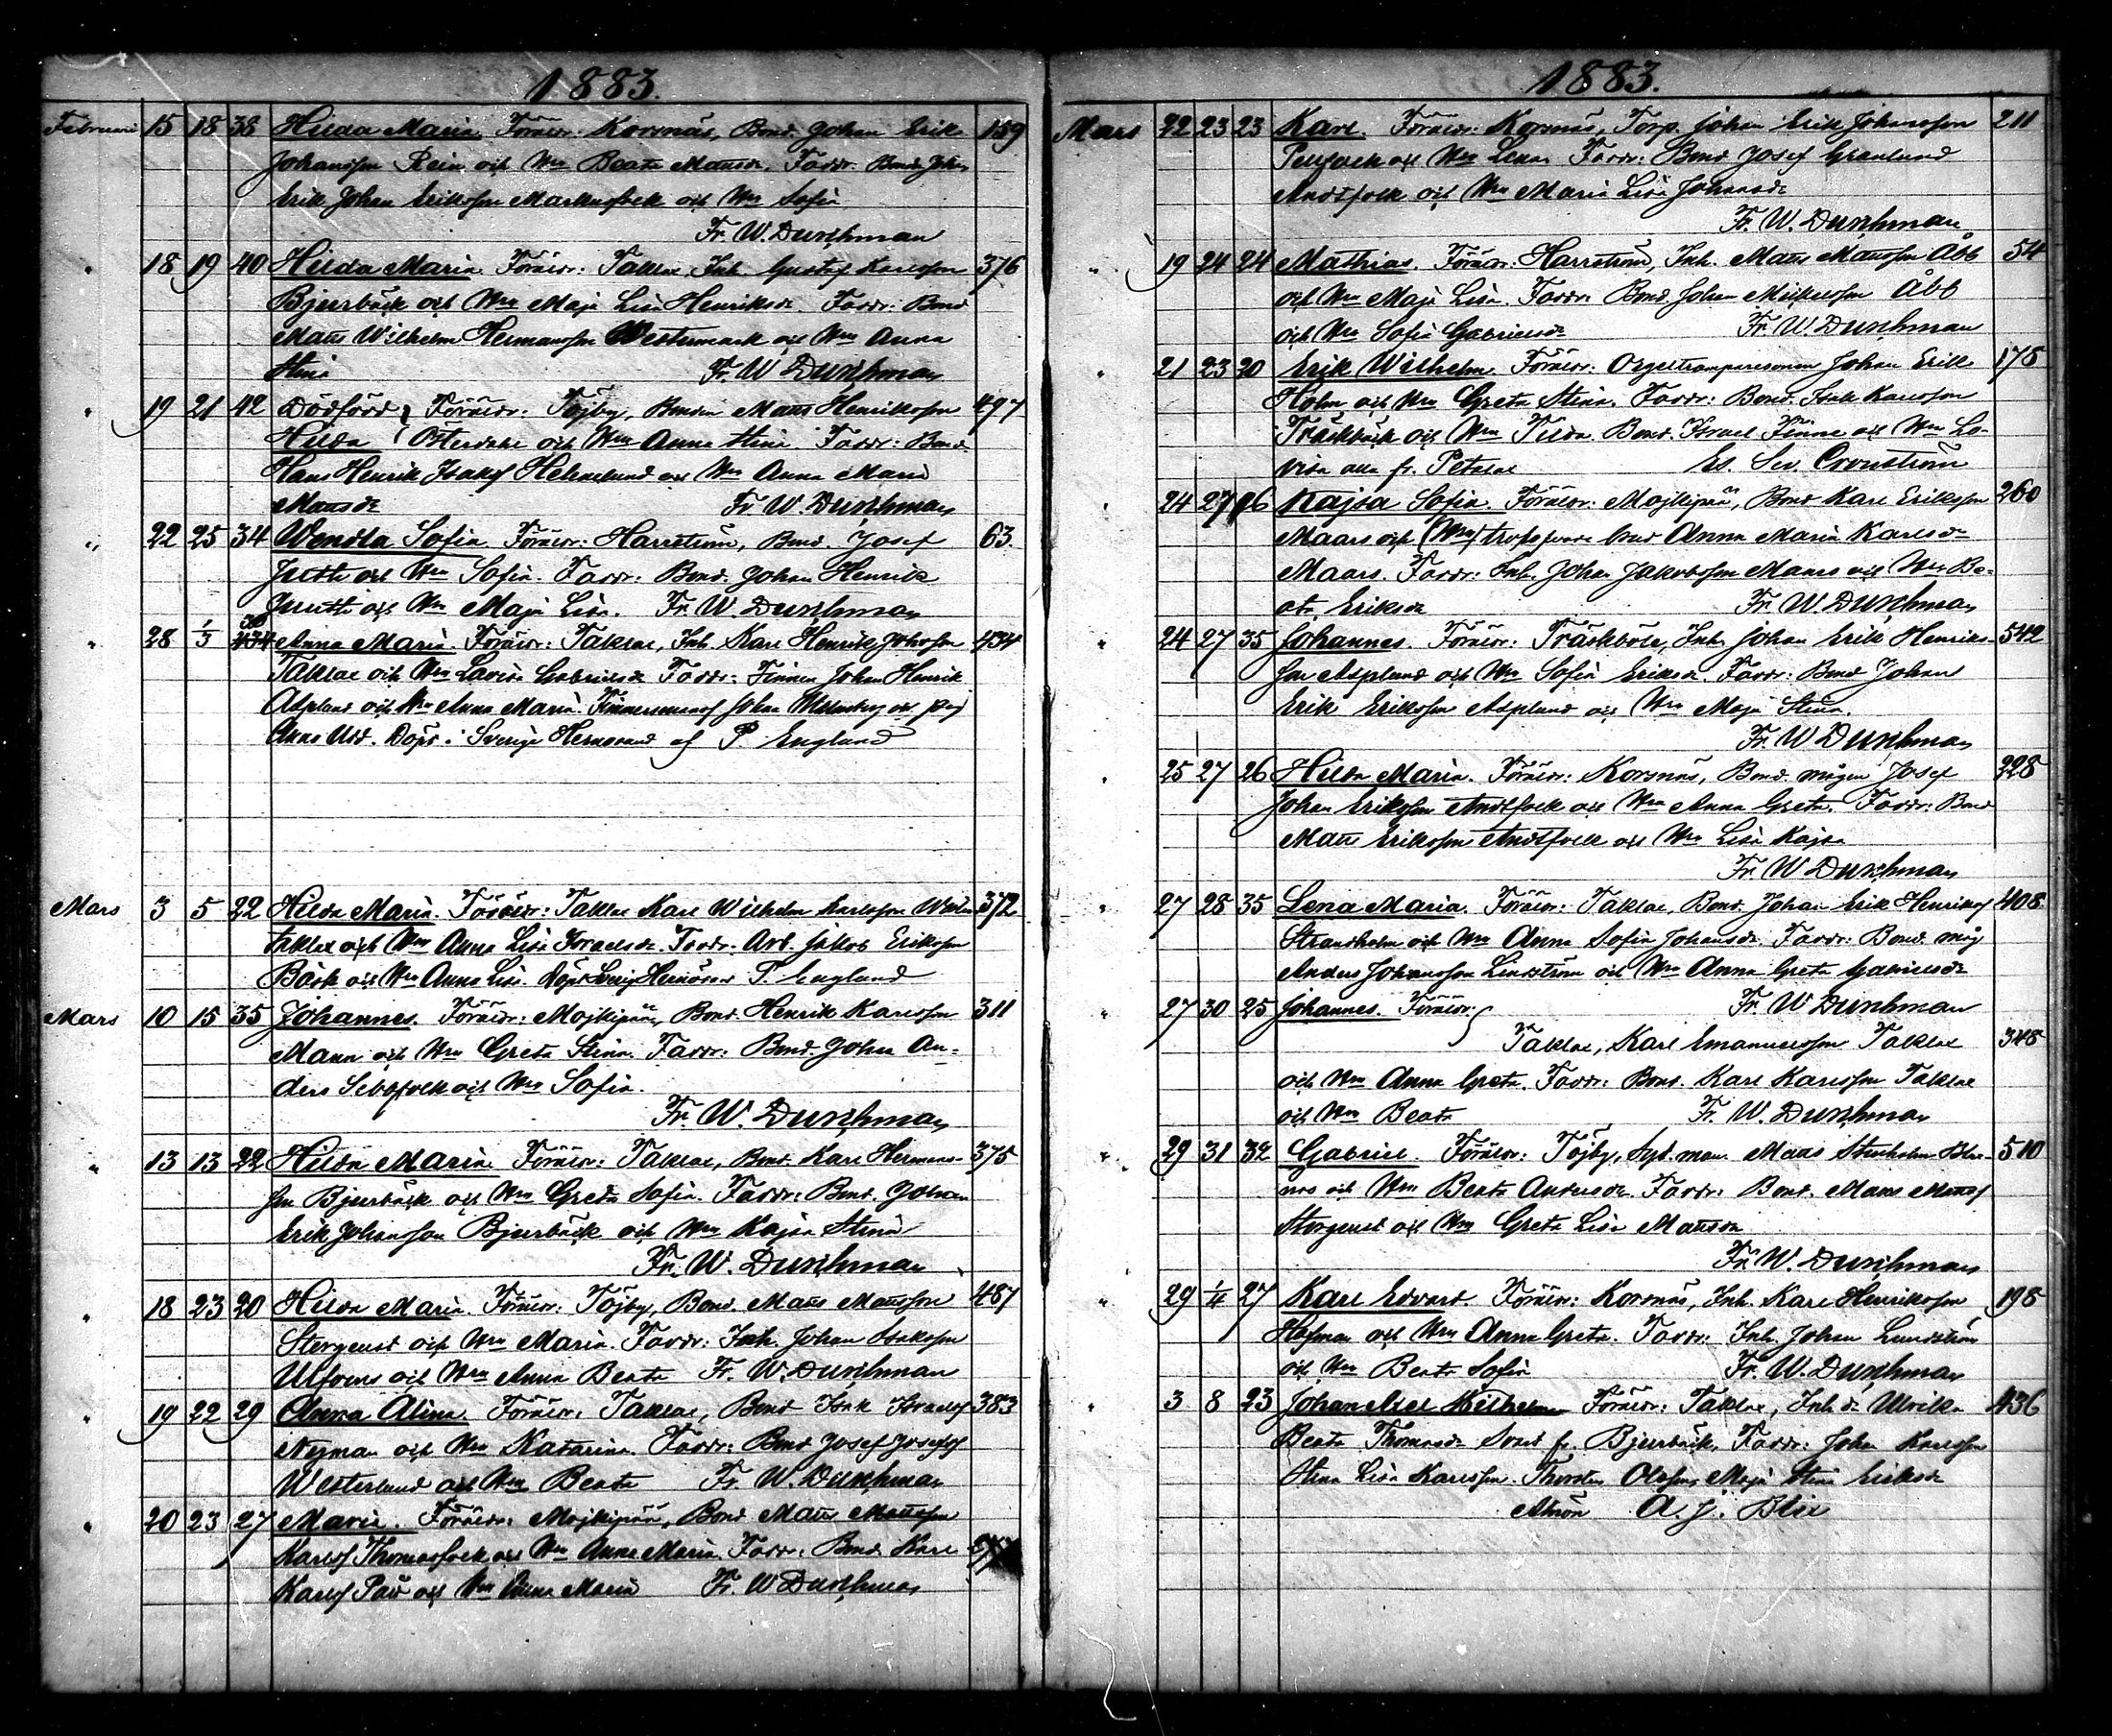 1883.
Februari 15 18 38 Hilda Maria. Föräldr: Korsnäs, Bond. Johan Erik 159
Johansson Rein och Hu Beata Mansdr. Faddr. Bond. Joh.
Erik Johan Eriksson och Hu Sofia
Fr. W. Durchman
" 18 19 40 Hilda Maria. Föräldr: Taklax Inh. Gustaf Karlsson 376
Bjurbäck och Hu Maja Lisa Henriksdr. Faddr: Bond
Matts Wilhelm Hermansson Westermark och Hu Anna
Stina Fr. W. Durchman
" 19 21 42 Dödförd Föräldr: Töjby, Bonden Matts Henriksson 497
Hilda och Hu Anna Stina. Faddr: Bond.
Hans Henrik Isaks och Hu Anna Maria
Mansdr Fr. W. Durchman
" 22 25 34 Wendla Sofia. Föräldr: Harrström, Bond. Josef 63.
Juth och Hu Sofia. Faddr: Bond. Johan Henrik
och Hu Maja Lisa. Fr. W. Durchman
" 28 1/3 Anna Maria. Föräldr: Taklax, Inh. Karl Henrik Johansson 434
Taklax och Hu Lovisa Gabrielsdr Faddr: Johan Henrik
Asplund och Hu Anna Maria. Johan
Anna Döpt i Sverige Hernösand af P. Englund
Mars 3 5 22 Hilda Maria. Föräldr: Taklax Karl Wilhelm Karlsson 372
Taklax och Hu Anna Lisa Israelsdr. Faddr: Arb. Jakob Eriksson
Bäck och Hu Anna Lisa. Döpt Sverig Hernösand P. Englund
Mars 10 15 35 Johannes. Föräldr: Mojkipää, Bond. Henrik Karlsson 311
Mann och Hu Greta Stina. Faddr: Bond. Johan An-
ders Sebbfolk och Hu Sofia.
Fr. W. Durchman
" 13 13 22 Hilda Maria. Föräldr: Taklax, Bond. Karl Hermans- 375
son Bjurbäck och Hu Greta Sofia. Faddr: Bond. Johan
Erik Johansson Bjurbäck och Hu Kajsa Stina
Fr. W. Durchman
" 18 23 20 Hilda Maria. Föräldr: Töjby, Bond. Matts Mattsson 487
Storgeust och Hu Maria. Faddr: Inh. Johan Isaksson
Ulfvens och Hu Anna Beata Fr. W. Durchman
" 19 22 29 Anna Alina. Föräldr: Taklax, Bond Isak Israels 383
Nyman och Hu Katarina. Faddr: Bond Josef Josefs
Westerlund och Hu Beata Fr. W. Durchman
" 20 23 27 Maria. Föräldr: Mojkipää, Bond Matts Mattsson
Karls Thomasfolk och Hu Anna Maria. Faddr: Bond. Karl
Karls och Hu Anna Maria Fr. W. Durchman
1883.
Mars 22 23 23 Karl. Föräldr: Korsnäs, Torp. Johan Erik Johansson 211
och Hu Lena Faddr: Bond Josef Granlund
Andtfolk och Hu Maria Lisa Johansdr
Fr. W. Durchman
" 19 24 24 Mathias. Föräldr: Harrström, Inh. Matts Mattsson Åbb 54
och Hu Maja Lisa. Faddr: Bond. Johan Mickelsson Åbb
och Hu Sofia Gabrielsdr Fr. W. Durchman
" 21 23 20 Erik Wilhelm. Föräldr: Orgeltramparesonen Johan Erik 175
Holm och Hu Greta Stina. Faddr: Bond. Isak Karlsson
Träskbäck och Hu Tilda. Bond. Israel Finne och Hu Lo-
visa alla fr. Petalax Es. Sev. Cronström
" 24 27 26 Kajsa Sofia. Föräldr: Mojkipää, Bond Karl Eriksson 260
Maars och (Hu) Anna Maria Karlsdr
Maars. Faddr: Inh. Johan Jakobsson Maars och Hu Be-
ata Eriksdr Fr. W. Durchman
" 24 27 35 Johannes. Föräldr: Träskböle, Inh. Johan Erik Henriks- 542
son Asplund och Hu Sofia Eriksdr. Faddr: Bond Johan
Erik Eriksson Asplund och Hu Maja Stina.
Fr. W. Durchman
" 25 27 26 Hilda Maria. Föräldr: Korsnäs, Bond. mågen Josef 228
Johan Eriksson Andtfolk och Hu Anna Greta. Faddr: Bond
Matts Eriksson Andtfolk och Hu Lisa Kajsa
Fr. W. Durchman
" 27 28 35 Lena Maria. Föräldr: Taklax, Bond. Johan Erik Henriks 408
Strandholm och Hu Anna Sofia Johansdr. Faddr: Bond. måg
Anders Johansson Lindström och Hu Anna Greta Gabrielsdr
Fr. W. Durchman
" 27 30 25 Johannes. Föräldr:
Taklax, Karl Emanuelsson Taklax 348
och Hu Anna Greta. Faddr: Bond. Karl Karlsson Taklax
och Hu Beata Fr. W. Durchman
" 29 31 32 Gabriel. Föräldr: Töjby, Matts Stenholm 510
och Hu Beata Andersdr. Faddr: Bond. Matts Matts
Storgeust och Hu Greta Lisa Mansdr
Fr. W. Durchman
" 29 1/4 27 Karl Edvard. Föräldr: Korsnäs, Inh. Karl Henriksson 198
Hofman och Hu Anna Greta. Faddr: Inh. Johan Lundström
och Hu Beata Sofia Fr. W. Durchman
" 3 8 23 Johan Axel Wilhelm Föräldr: Taklax, Inh. dr Ulrika 436
Beata Thomasdr fr. Bjurbäck. Faddr: Johan Karlsson
Stina Lisa Karlsson. Thorsten Olsson, Maja Stina Eriksdr
Alnön A. J. Blix